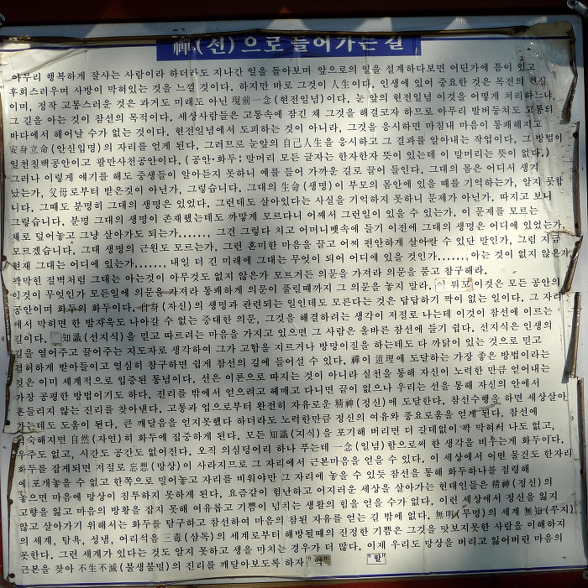 禪(선)으로 들어가는 길
아무리 행복하게 잘사는 사람이라 하더라도 지나간 일을 돌아보며 앞으로의 일을 설계하다보면 어딘가에 틈이 있고
후회스러우며 사방이 막혀있는 것을 느낄 것이다. 하지만 바로 그것이 人生이다. 인생에 있어 중요한 것은 목전의 현실
이며, 정작 고통스러운 것은 과거도 미래도 아닌 現前一念(현전일념)이다. 눈 앞의 현전일념 이것을 어떻게 처리하느냐,
그 길을 아는 것이 참선의 목적이다. 세상사람들은 고통속에 잠긴 채 그것을 해결코자 하므로 아무리 발버둥쳐도 고통의
바다에서 헤어날 수가 없는 것이다. 현전일념에서 도피하는 것이 아니라, 그것을 응시하면 마침내 마음이 통쾌해지고
安身立命(안신입명)의 자리를 얻게 된다. 그러므로 눈앞의 自己人生을 응시하고 그 결과를 얻어내는 작업이다. 그 방법이
일천칠백공안이고 팔만사천공안이다. (공안·화두: 말머리 모든 글자는 한자한자 뜻이 있는데 이 말머리는 뜻이 없다.)
그러나 이렇게 얘기를 해도 중생들이 알아듣지 못하니 예를 들어 가까운 길로 끌어 들인다. 그대의 몸은 어디서 생겨
났는가, 父母로부터 받은것이 아닌가, 그렇습니다. 그대의 生命(생명)이 부모의 몸안에 있을 때를 기억하는가, 알지 못합
니다. 그때도 분명히 그대의 생명은 있었다. 그런데도 살아있다는 사실을 기억하지 못하니 문제가 아닌가, 따지고 보니
그렇습니다. 분명 그대의 생명이 존재했는데도 까맣게 모르다니 어째서 그런일이 있을 수 있는가, 이 문제를 모르는
채로 덮어놓고 그냥 살아가도 되는가......, 그건 그렇다 치고 어머니뱃속에 들기 이전에 그대의 생명은 어디에 있었는가,
모르겠습니다. 그대 생명의 근원도 모르는가, 그런 혼미한 마음을 끌고 어찌 편안하게 살아갈 수 있단 말인가, 그럼 지금
현재 그대는 어디에 있는가......, 내일 더 긴 미래에 그대는 무엇이 되어 어디에 있을 것인가......, 아는 것이 없지 않은가,
깜깜한 절벽처럼 그대는 아는것이 아무것도 없지 않은가 모르거든 의문을 가져라 의문을 품고 참구해라.
이것이 무엇인가 모든일에 의문을 가져라 통쾌하게 의문이 풀릴때까지 그 의문을 놓지 말라, 이 뭐꼬 이것은 모든 공안의
공안이며 화두의 화두이다. 自身(자신)의 생명과 관련되는 일인데도 모른다는 것은 답답하기 짝이 없는 일이다. 그 자리
에서 막히면 한 발자욱도 나아갈 수 없는 중대한 의문, 그것을 해결하려는 생각이 저절로 나는데 이것이 참선에 이르는
길이다. 知識(선지식)을 믿고 따르려는 마음을 가지고 있으면 그 사람은 올바른 참선에 들기 쉽다. 선지식은 인생의
길을 열어주고 끌어주는 지도자로 생각하여 그가 고함을 지르거나 방망이질을 하는데도 다 까닭이 있는 것으로 믿고
겸허하게 받아들이고 열심히 참구하면 쉽게 참선의 길에 들어설 수 있다. 禪이 道岸에 도달하는 가장 좋은 방법이라는
것은 이미 세계적으로 입증된 통념이다. 선은 이론으로 따지는 것이 아니라 실천을 통해 자신이 노력한 만큼 얻어내는
가장 공평한 방법이기도 하다. 진리를 밖에서 얻으려고 헤매고 다니면 끝이 없으나 우리는 선을 통해 자신의 안에서
흔들리지 않는 진리를 찾아낸다. 고통과 업으로부터 완전히 자유로운 精神(정신)에 도달한다. 참선수행을 하면 세상살아
가는데도 도움이 된다. 큰 깨달음을 얻지못했다 하더라도 노력한만큼 정신의 여유와 풍요로움을 얻게 된다. 참선에
익숙해지면 自然(자연)히 화두에 집중하게 된다. 모든 知識(지식)을 포기해 버리면 더 갈데없이 꽉 막혀서 나도 없고,
우주도 없고, 시간도 공간도 없어진다. 오직 의심덩어리 하나 푸는데 一念(일념)함으로써 한 생각을 비우는게 화두이다.
화두를 잡게되면 저절로 忘想(망상)이 사라지므로 그 자리에서 근본마음을 얻을 수 있다. 이 세상에서 어떤 물건도 한자리
에 포개놓을 수 없고 한쪽으로 밀어놓고 자리를 비워야만 그 자리에 놓을 수 있듯 참선을 통해 화두하나를 점령해
놓으면 마음에 망상이 침투하지 못하게 된다. 요즘같이 험난하고 어지러운 세상을 살아가는 현대인들은 精神(정신)의
고향을 잃고 마음의 방황을 잡지 못해 여유롭고 기쁨이 넘치는 생활의 힘을 얻을 수가 없다. 이런 세상에서 정신을 잃지
않고 살아가기 위해서는 화두를 탐구하고 참선하여 마음의 참된 자유를 얻는 길 밖에 없다. 無明(무명)의 세계 無知(무지)
의 세계, 탐욕, 성냄, 어리석음 三毒(삼독)의 세계로부터 해방될때의 진정한 기쁨은 그것을 맛보지못한 사람을 이해하지
못한다. 그런 세계가 있다는 것도 알지 못하고 생을 마치는 경우가 더 많다. 이제 우리도 망상을 버리고 잃어버린 마음의
근본을 찾아 不生不滅(불생불멸)의 진리를 깨달아보도록 하자 "악" "할"